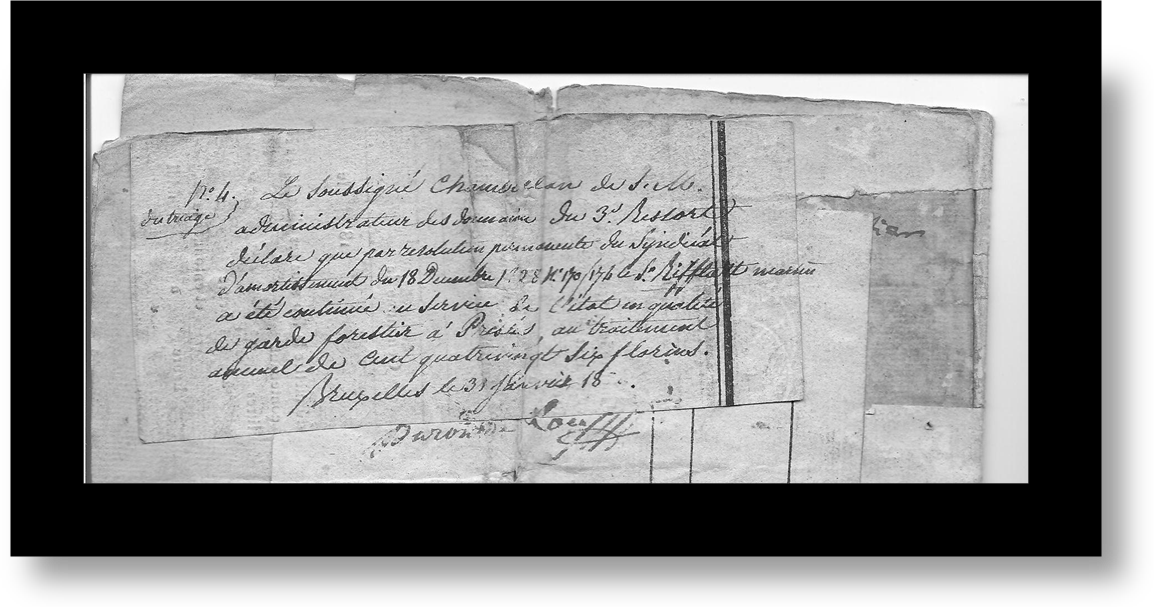 N° 4. Le Soussigné Chambellan de S. M.
du triage administrateur des domaines du 3e Ressort
déclare que par resolution permanente du Syndicat
d'amortissement du 18 Decembre N° 170/176 le Sr Rifflart
a été continué au Service de l'état en qualité
de garde forestier à au traitement
annuel de Cent quatrevingt Six florins.
Bruxelles le 31 18
Baron de